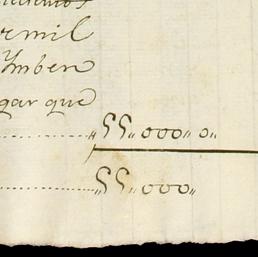 mil
Ymben
gar que
55,,000,, 0,,
55,,000,,